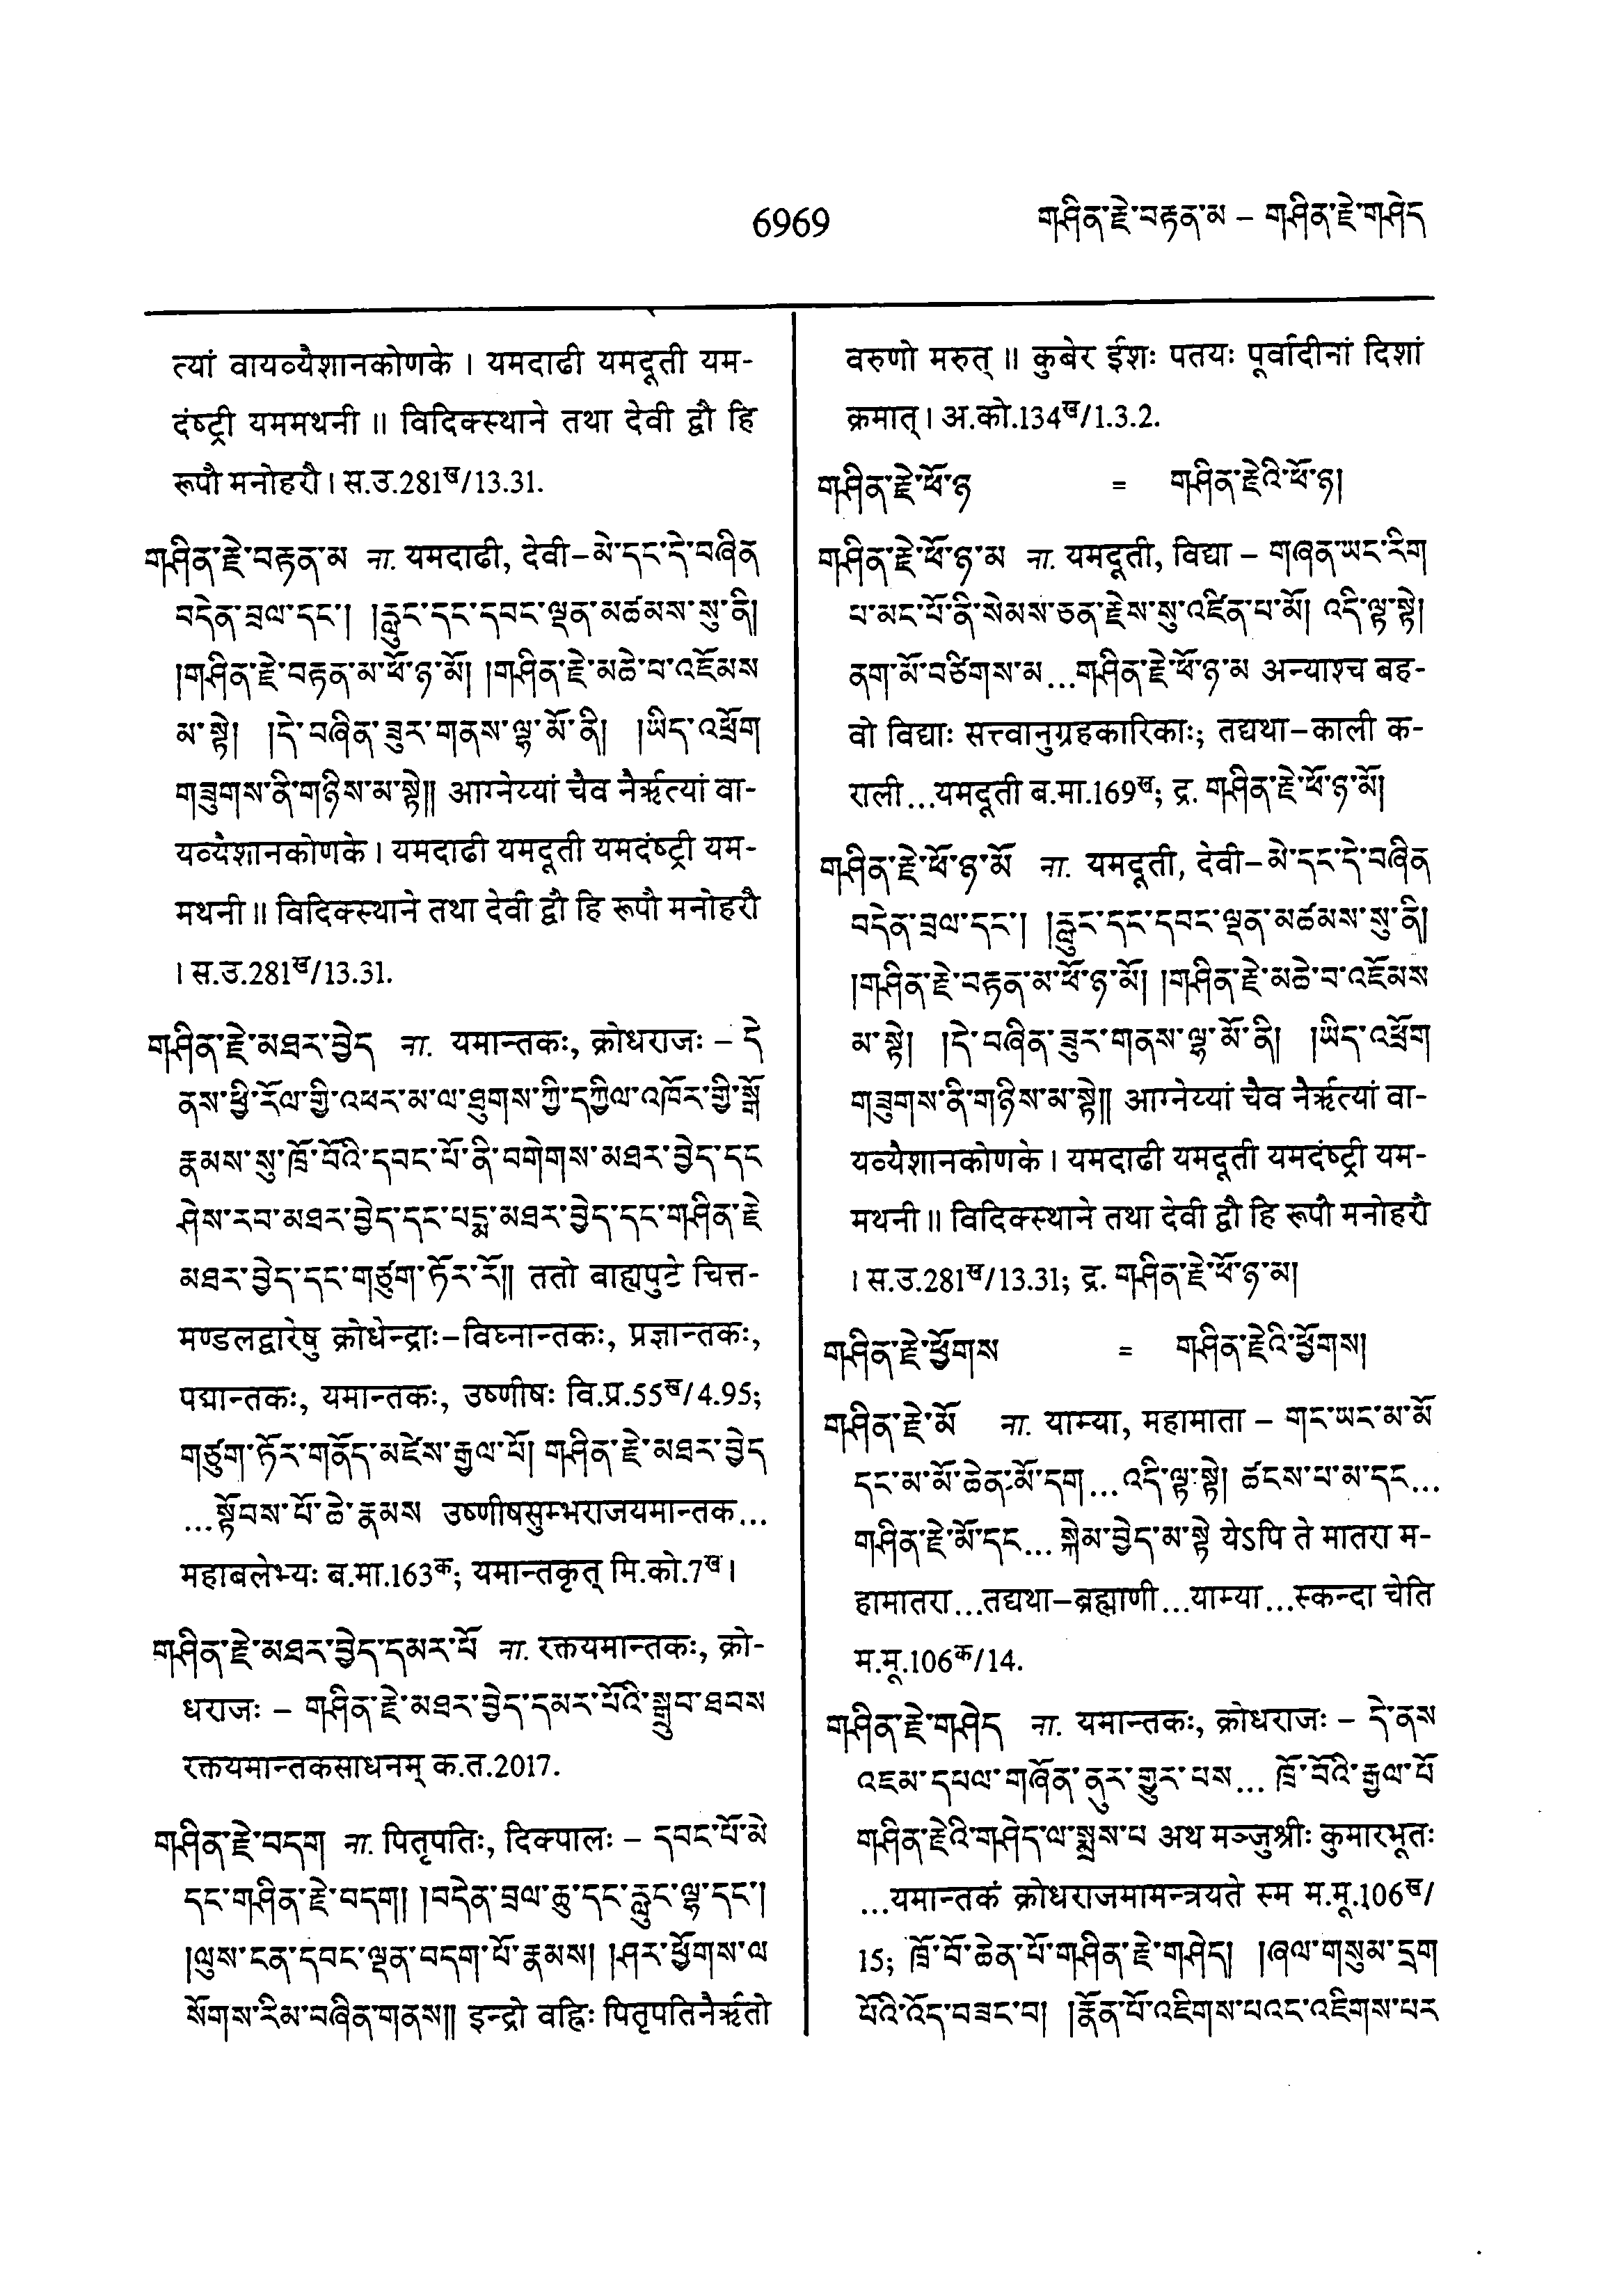 6969
གཤིན་རྗེ་བརྟན་མ – གཤིན་རྗེ་གཤེད
त्यां वायव्यैशानकोणके । यमदाढी यमदूती यम-
दंष्ट्री यममथनी ॥ विदिक्स्थाने तथा देवी द्वौ हि
रूपौ मनोहरौ । स.उ.281ख/13.31.
གཤིན་རྗེ་བརྟན་མ ना. यमदाढी, देवी–མེ་དང་དེ་བཞིན
བདེན་བྲལ་དང་། །རླུང་དང་དབང་ལྡན་མཚམས་སུ་ནི།
།གཤིན་རྗེ་བརྟན་མ་ཕོ་ཉ་མོ། །གཤིན་རྗེ་མཆེ་བ་འཇོམས
མ་སྟེ། །དེ་བཞིན་ཟུར་གནས་ལྷ་མོ་ནི། །ཡིད་འཕྲོག
གཟུགས་ནི་གཉིས་མ་སྟེ༎ आग्नेय्यां चैव नैर्ऋत्यां वा-
यव्यैशानकोणके । यमदाढी यमदूती यमदंष्ट्री यम-
मथनी ॥ विदिक्स्थाने तथा देवी द्वौ हि रूपौ मनोहरौ
। स.उ.281ख/13.31.
གཤིན་རྗེ་མཐར་བྱེད ना. यमान्तकः, क्रोधराजः – དེ
ནས་ཕྱི་རོལ་གྱི་འཕར་མ་ལ་ཐུགས་ཀྱི་དཀྱིལ་འཁོར་གྱི་སྒོ
རྣམས་སུ་ཁྲོ་བོའི་དབང་པོ་ནི་བགེགས་མཐར་བྱེད་དང
ཤེས་རབ་མཐར་བྱེད་དང་པདྨ་མཐར་བྱེད་དང་གཤིན་རྗེ
མཐར་བྱེད་དང་གཙུག་ཏོར་རོ༎ ततो बाह्यपुटे चित्त-
मण्डलद्वारेषु क्रोधेन्द्राः–विघ्नान्तकः, प्रज्ञान्तकः,
पद्मान्तकः, यमान्तकः, उष्णीषः वि.प्र.55ख/4.95;
གཙུག་ཏོར་གནོད་མཛེས་རྒྱལ་པོ། གཤིན་རྗེ་མཐར་བྱེད
...སྟོབས་པོ་ཆེ་རྣམས उष्णीषसुम्भराजयमान्तक...
महाबलेभ्यः ब.मा.163क; यमान्तकृत् मि.को.7ख ।
གཤིན་རྗེ་མཐར་བྱེད་དམར་པོ ना. रक्तयमान्तकः, क्रो-
धराजः – གཤིན་རྗེ་མཐར་བྱེད་དམར་པོའི་སྒྲུབ་ཐབས
रक्तयमान्तकसाधनम् क.त.2017.
གཤིན་རྗེ་བདག ना. पितृपतिः, दिक्पालः – དབང་པོ་མེ
དང་གཤིན་རྗེ་བདག། །བདེན་བྲལ་ཆུ་དང་རླུང་ལྷ་དང་།
།ལུས་ངན་དབང་ལྡན་བདག་པོ་རྣམས། །ཤར་ཕྱོགས་ལ
སོགས་རིམ་བཞིན་གནས༎ इन्द्रो वह्निः पितृपतिर्नैर्ऋतो
वरुणो मरुत् ॥ कुबेर ईशः पतयः पूर्वादीनां दिशां
क्रमात् । अ.को.134ख/1.3.2.
གཤིན་རྗེ་ཕོ་ཉ = གཤིན་རྗེའི་ཕོ་ཉ།
གཤིན་རྗེ་ཕོ་ཉ་མ ना. यमदूती, विद्या – གཞན་ཡང་རིག
པ་མང་པོ་ནི་སེམས་ཅན་རྗེས་སུ་འཛིན་པ་མོ། འདི་ལྟ་སྟེ།
ནག་མོ་བཙིགས་མ...གཤིན་རྗེ་ཕོ་ཉ་མ अन्याश्च बह-
वो विद्याः सत्त्वानुग्रहकारिकाः; तद्यथा–काली क-
राली...यमदूती ब.मा.169ख; द्र. གཤིན་རྗེ་ཕོ་ཉ་མོ།
གཤིན་རྗེ་ཕོ་ཉ་མོ ना. यमदूती, देवी–མེ་དང་དེ་བཞིན
བདེན་བྲལ་དང་། །རླུང་དང་དབང་ལྡན་མཚམས་སུ་ནི།
།གཤིན་རྗེ་བརྟན་མ་ཕོ་ཉ་མོ། །གཤིན་རྗེ་མཆེ་བ་འཇོམས
མ་སྟེ། །དེ་བཞིན་ཟུར་གནས་ལྷ་མོ་ནི། །ཡིད་འཕྲོག
གཟུགས་ནི་གཉིས་མ་སྟེ༎ आग्नेय्यां चैव नैर्ऋत्यां वा-
यव्यैशानकोणके । यमदाढी यमदूती यमदंष्ट्री यम-
मथनी ॥ विदिक्स्थाने तथा देवी द्वौ हि रूपौ मनोहरौ
। स.उ.281ख/13.31; द्र. གཤིན་རྗེ་ཕོ་ཉ་མ།
གཤིན་རྗེ་ཕྱོགས = གཤིན་རྗེའི་ཕྱོགས།
གཤིན་རྗེ་མོ ना. याम्या, महामाता – གང་ཡང་མ་མོ
དང་མ་མོ་ཆེན་མོ་དག...འདི་ལྟ་སྟེ། ཚངས་པ་མ་དང...
གཤིན་རྗེ་མོ་དང... སྐེམ་བྱེད་མ་སྟེ येऽपि ते मातरा म-
हामातरा...तद्यथा–ब्रह्माणी...याम्या...स्कन्दा चेति
म.मू.106क/14.
གཤིན་རྗེ་གཤེད ना. यमान्तकः, क्रोधराजः – དེ་ནས
འཇམ་དཔལ་གཞོན་ནུར་གྱུར་པས... ཁྲོ་བོའི་རྒྱལ་པོ
གཤིན་རྗེའི་གཤེད་ལ་སྨྲས་པ अथ मञ्जुश्रीः कुमारभूतः
...यमान्तकं क्रोधराजमामन्त्रयते स्म म.मू.106ख/
15; ཁྲོ་བོ་ཆེན་པོ་གཤིན་རྗེ་གཤེད། །ཞལ་གསུམ་དྲག
པོའི་འོད་བཟང་བ། །རྣོན་པོ་འཇིགས་པའང་འཇིགས་པར